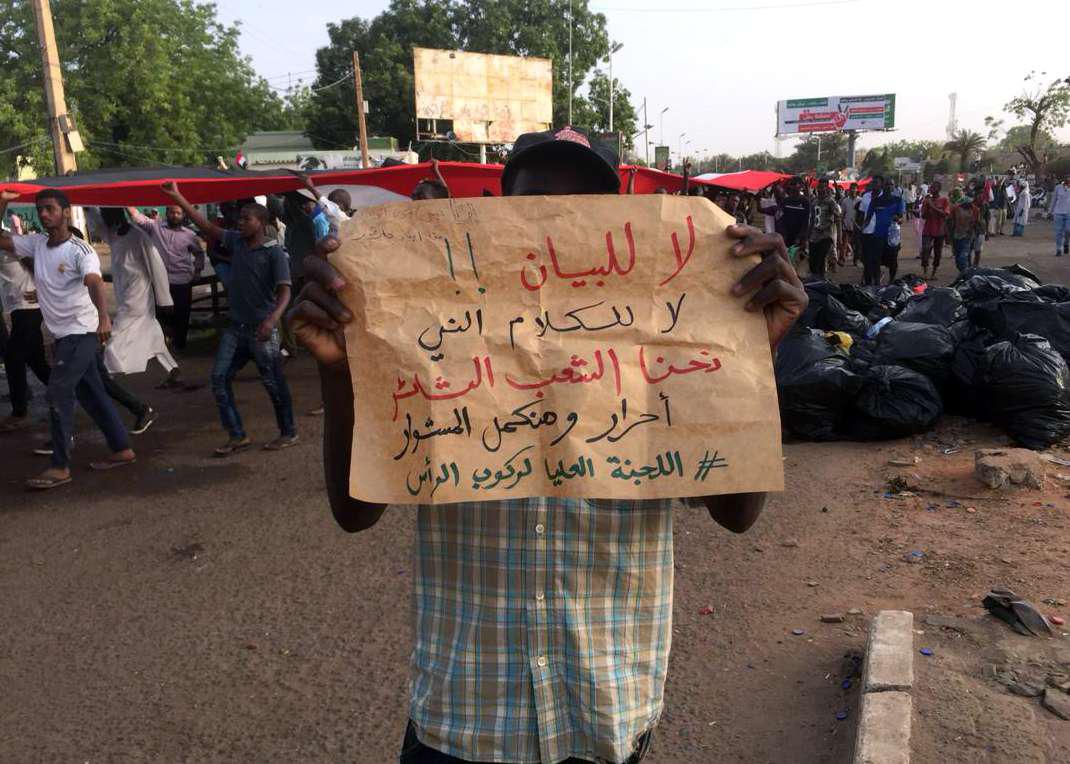 لا للبيان !!
لا للكلام الني
نحنا الشعب الشائر
أحرار وهنكمل المشوار
#اللجنة العليا لركوب الرأس